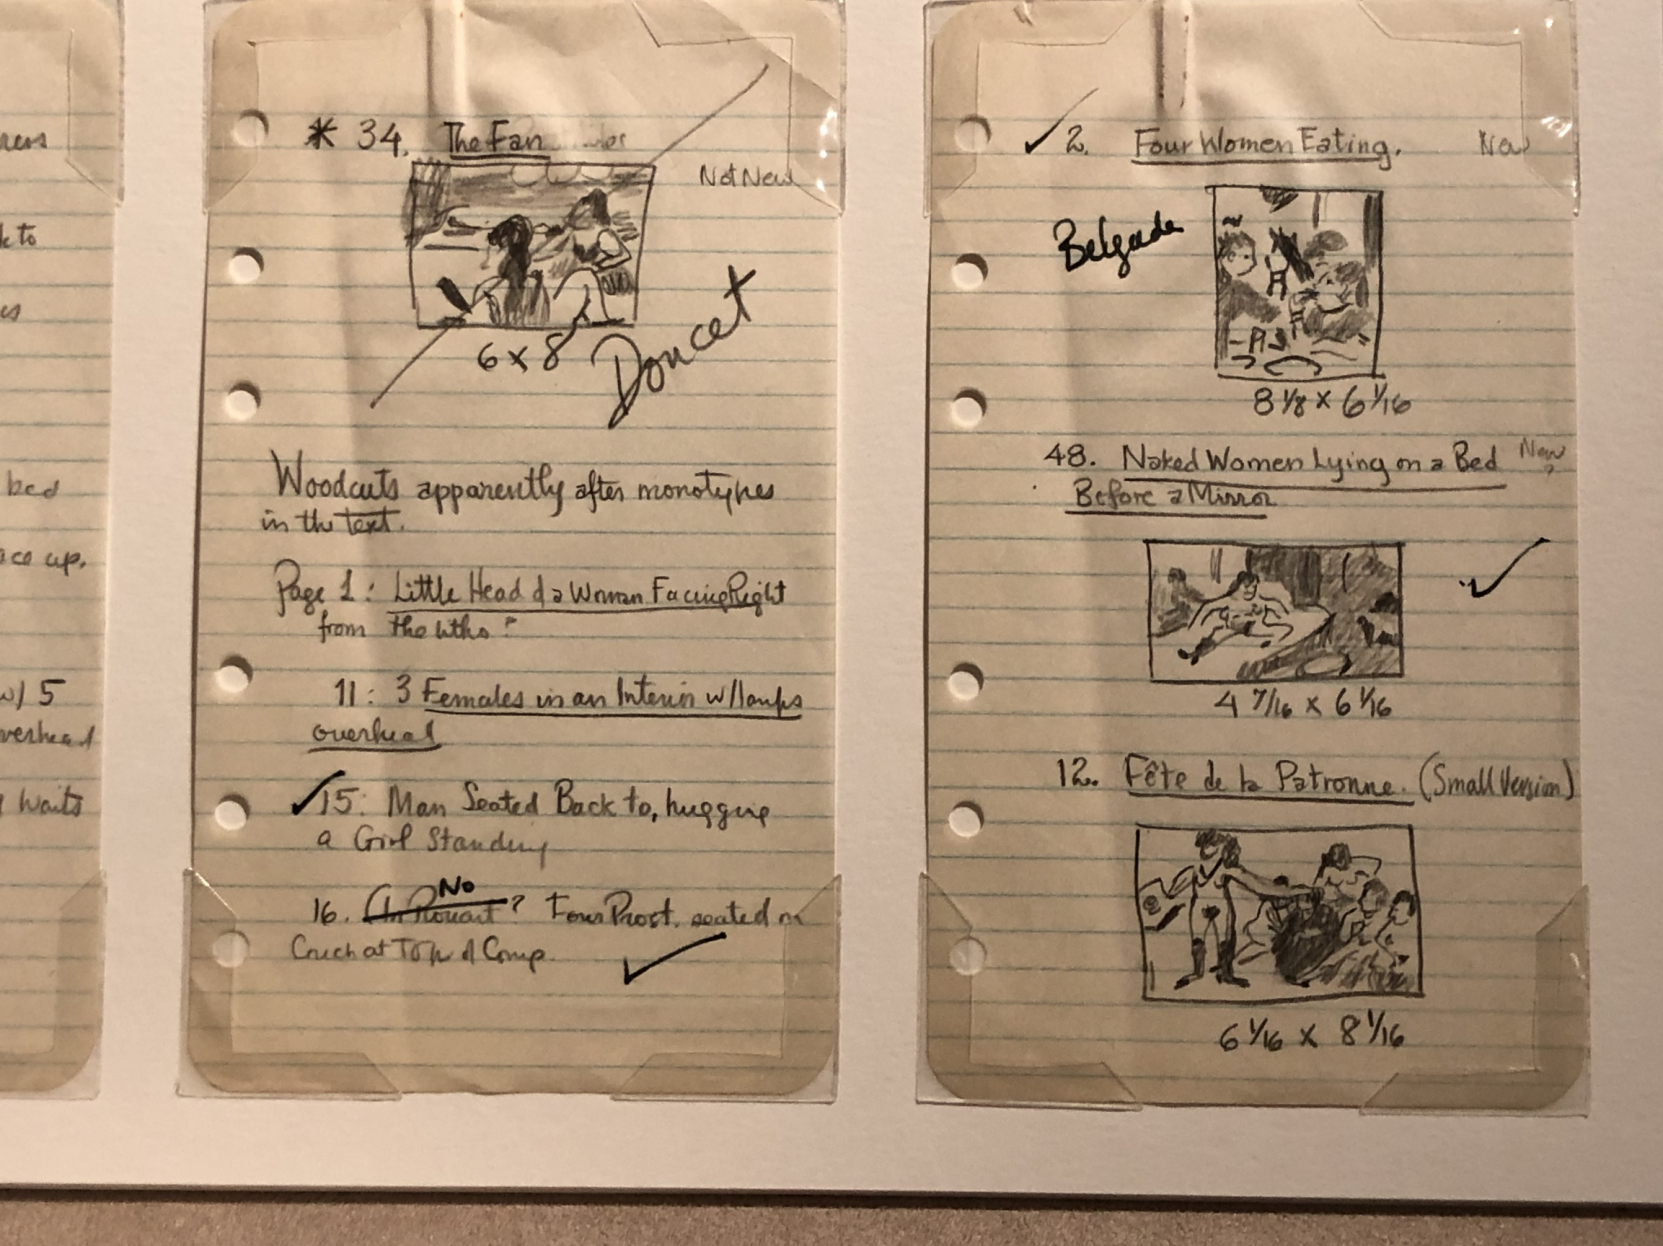 k to
bed
ace up.
w/ 5
overhead
waits
* 34. The Fan
Not New
6 x 8
Doucet
Woodcuts apparently after monotypes
in the text.
Page 1: Little Head of a Woman Facing Right
from the
11: 3 Females in an Interior w/lamps
overhead
✓15: Man Seated Back to, hugging
a Girl Standing
No
16. ? Four Prost. seated on
Couch at Top of Comp.
✓
✓ 2. Four Women Eating. New
Belgrade
8 1/8 x 6 1/16
48. Naked Women Lying on a Bed New
?
Before a Mirror
✓
4 7/16 x 6 1/16
12. Fête de la Patronne. (Small Version)
6 1/16 x 8 1/16